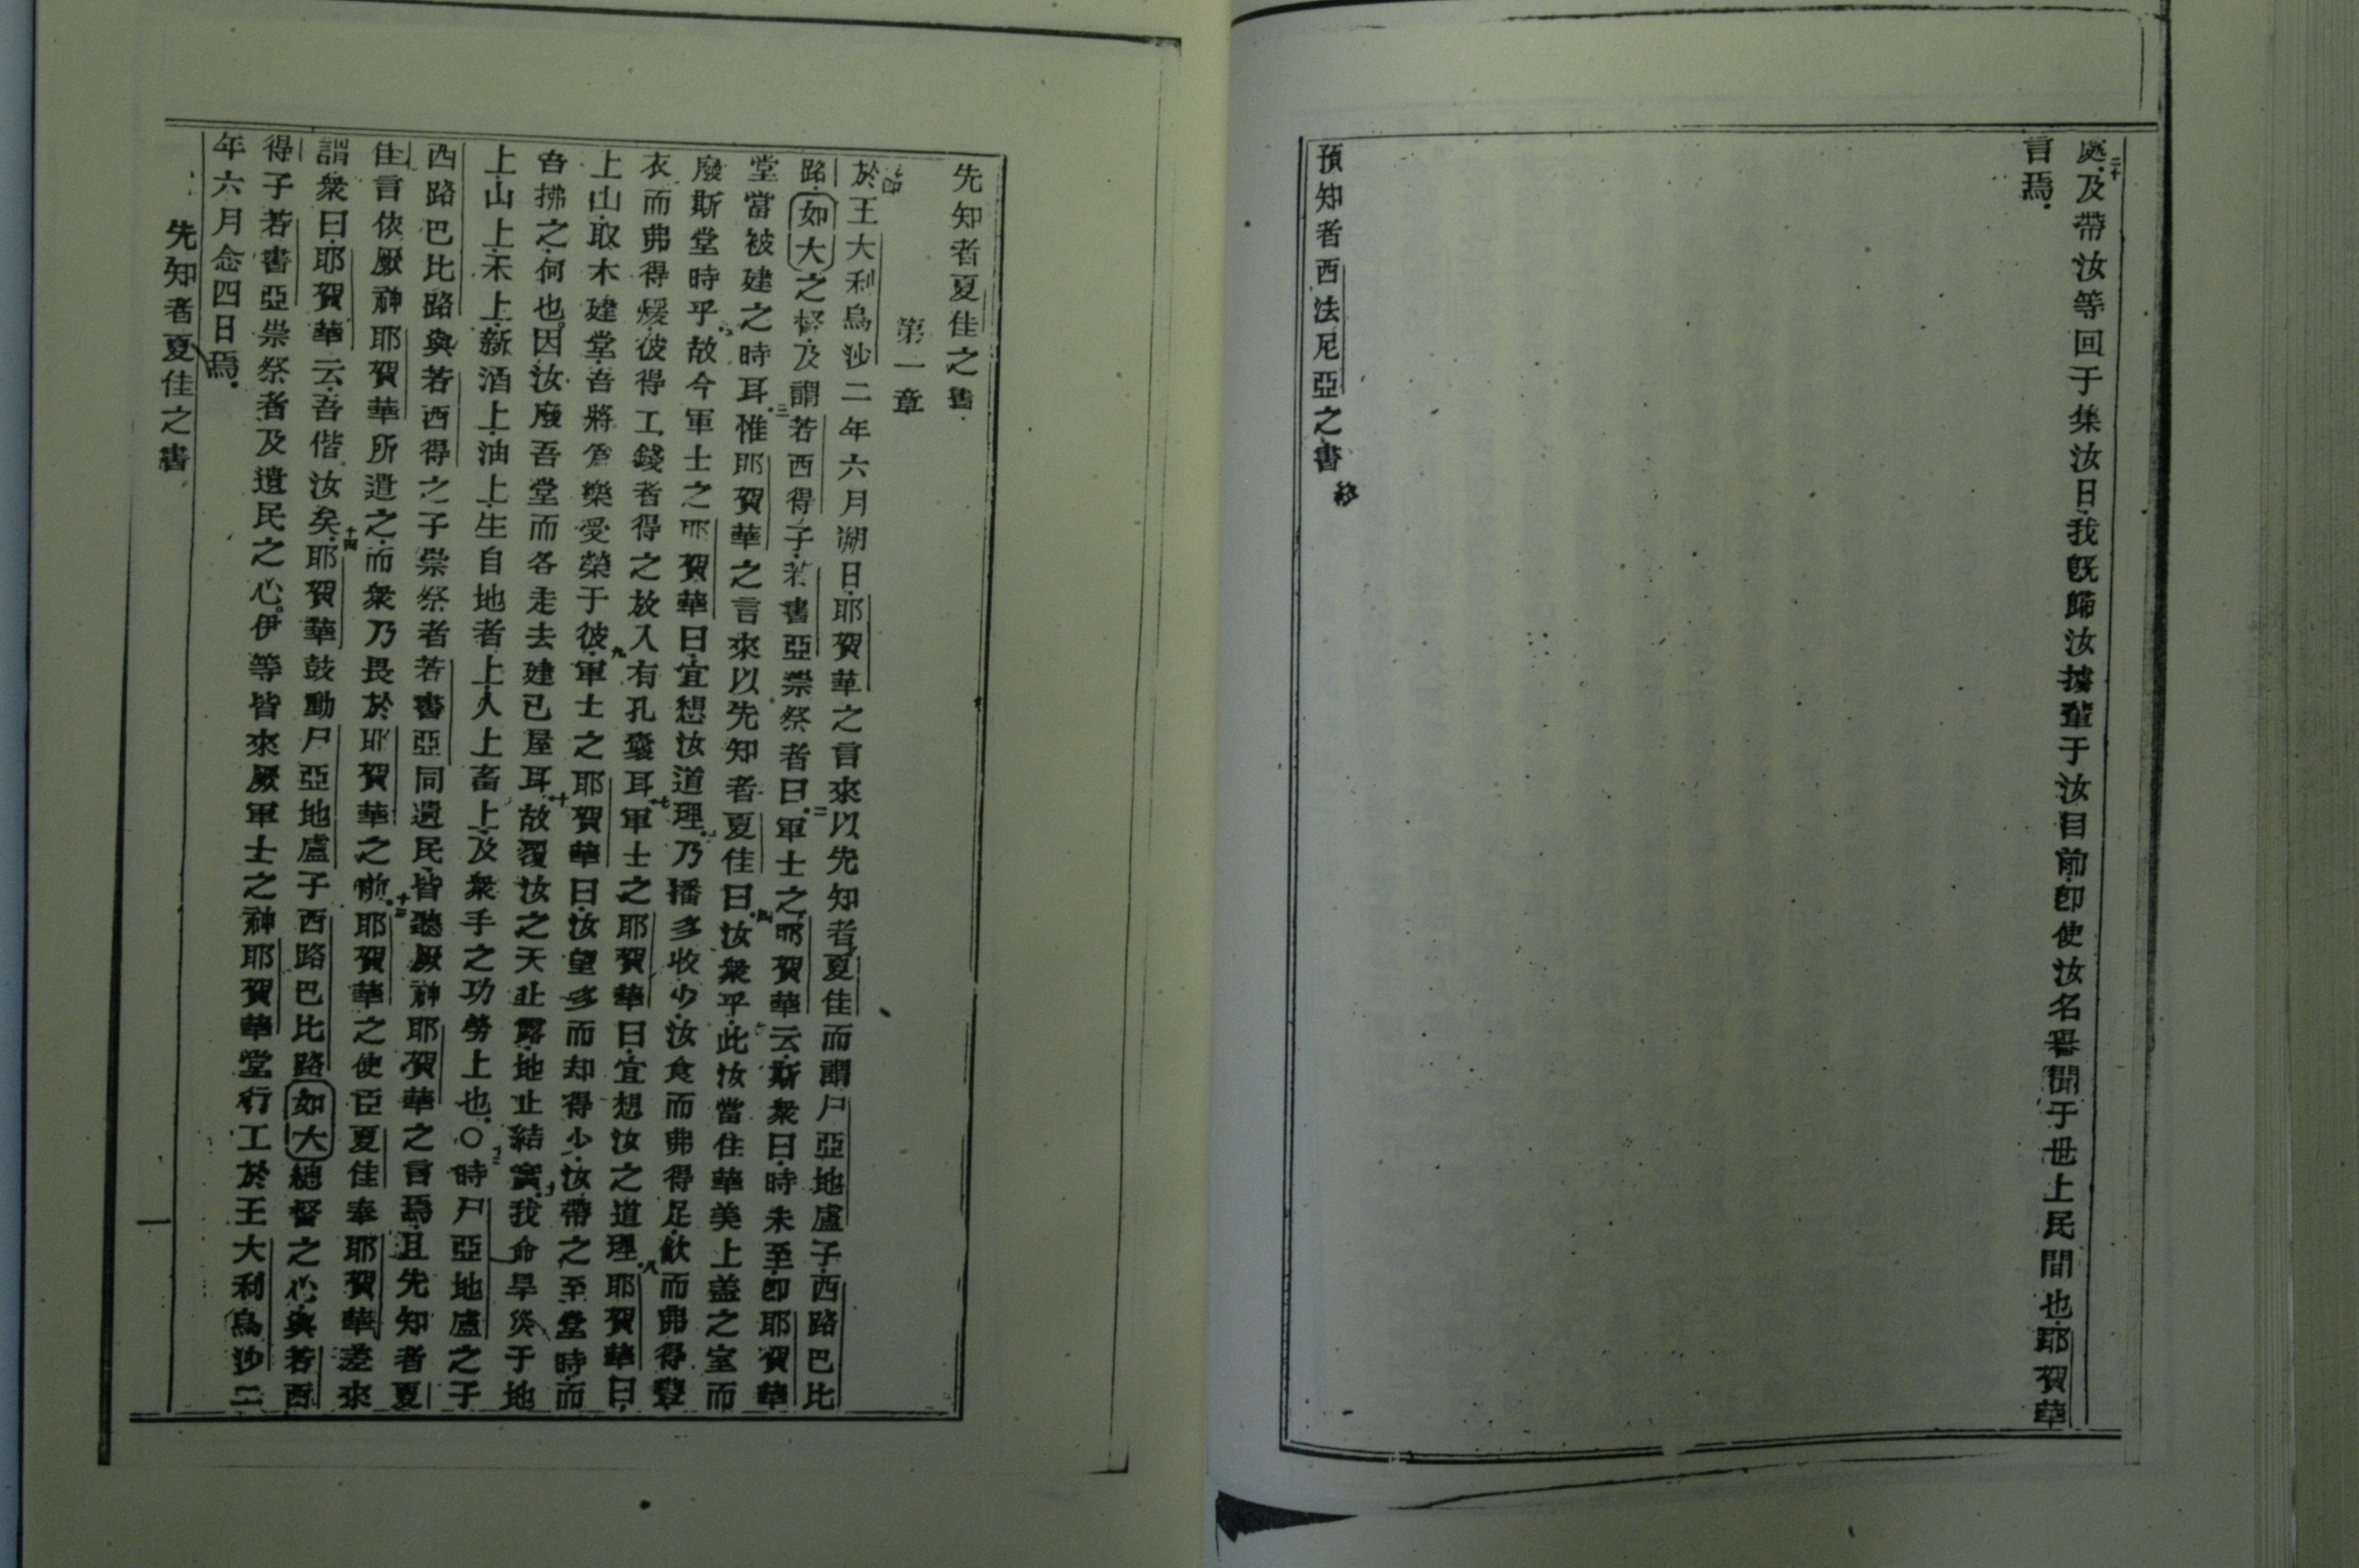 二十
處.及帶汝等回于集汝日.我既歸汝擄輩于汝目前.卽使汝名譽聞于世上民間也.耶賀華
言焉.
預知者西法尼亞之書 終
先知者夏佳之書.
第一章
於王大利烏沙二年六月朔日.耶賀華之言來以先知者夏佳而謂尸亞地盧子.西路巴比
路.如大之督.及謂若西得子.若書亞崇祭者曰.二軍士之耶賀華云.斯衆曰.時未至.卽耶賀華
堂當被建之時耳.三惟耶賀華之言來以先知者夏佳曰.四汝衆乎.此汝當住華美上盖之室而
廢斯堂時乎.五故今軍士之耶賀華曰.宜想汝道理.六乃播多收少.汝食而弗得足.飲而弗得豐.
衣而弗得煖.彼得工錢者得之放入有孔囊耳.七軍士之耶賀華曰.宜想汝之道理.八耶賀華曰.
上山.取木建堂.吾將爲樂受榮于彼.九軍士之耶賀華曰.汝望多而却得少.汝帶之至堂時.而
吾拂之.何也.因汝廢吾堂而各走去建己屋耳.十故覆汝之天止露.地止結實.十一我命旱災于地
上.山上.禾上.新酒上.油上.生自地者上.人上畜上.及衆手之功勞上也.○十二時尸亞地盧之子
西路巴比路與若西得之子崇祭者若書亞同遺民.皆聽厥神耶賀華之言焉.且先知者夏
佳言依厥神耶賀華所遣之.而衆乃畏於耶賀華之前.十三耶賀華之使臣夏佳奉耶賀華差來
謂衆曰.耶賀華云.吾偕汝矣.十四耶賀華鼓動尸亞地盧子西路巴比路如大總督之心.與若西
得子若書亞崇祭者及遺民之心.伊等皆來厥軍士之神耶賀華堂行工於王大利烏沙二
年六月念四日焉.
先知者夏佳之書 一